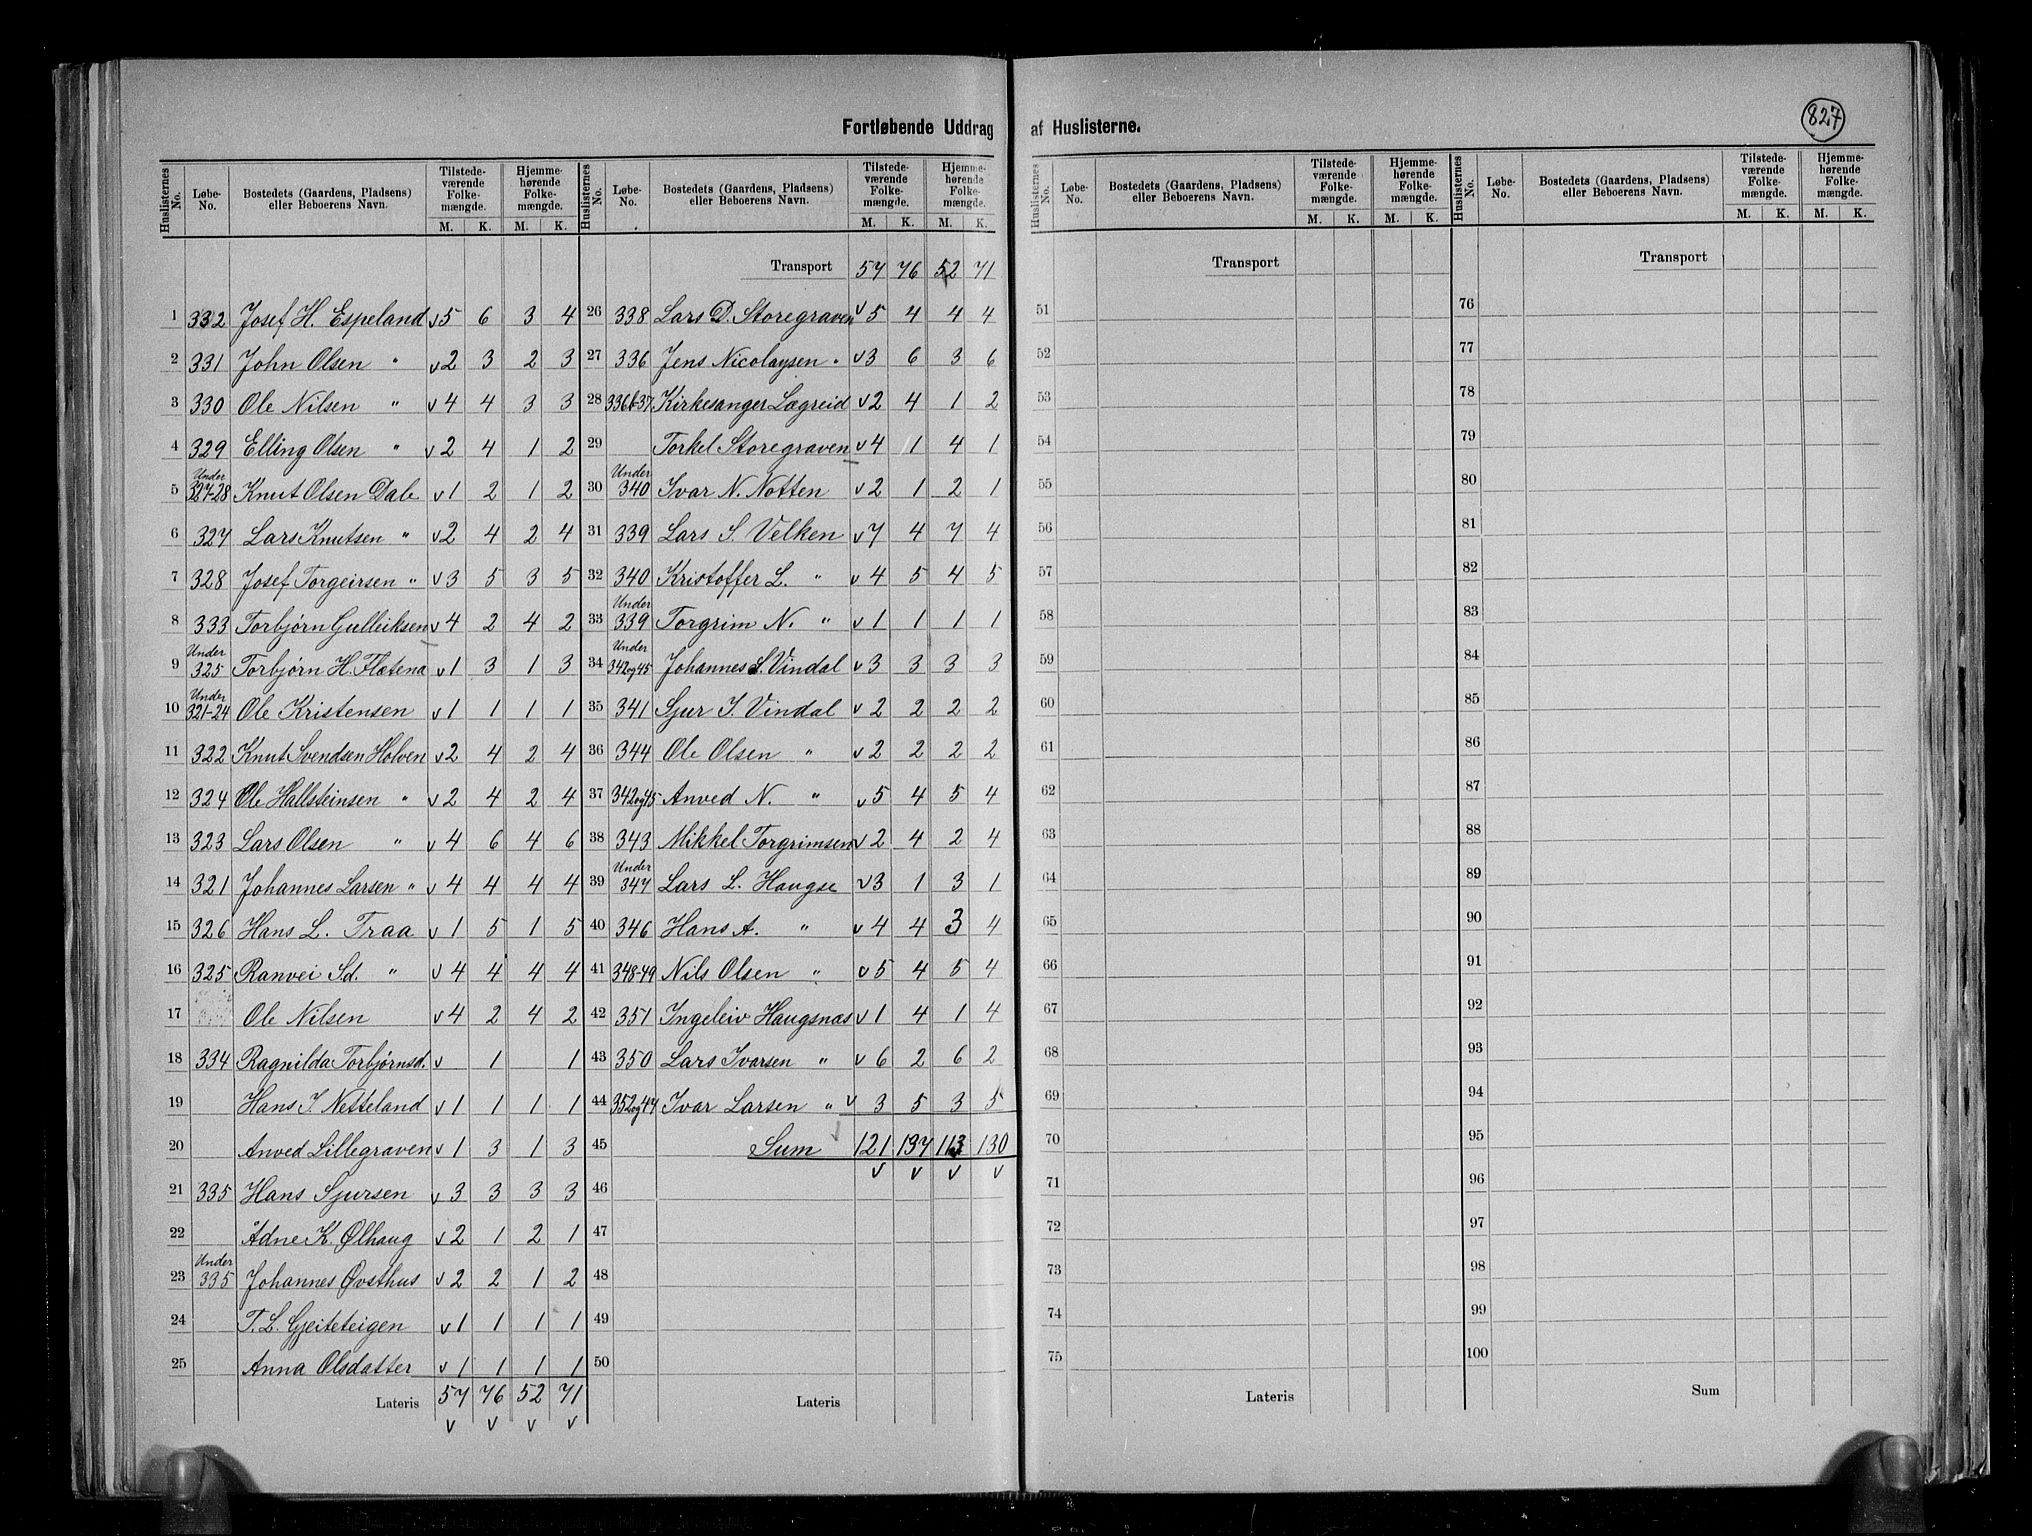 Fortløbende Uddrag af Huslisterne.
827
Huslisternes No. Løbe-No. Bostedets (Gaardens, Pladsens) eller Beboerens Navn. Tilstedeværende Folkemængde. M. K. Hjemmehørende Folkemængde. M. K.
1 332 Josef H. Espeland v 5 6 3 4
2 331 John Olsen " v 2 3 2 3
3 330 Ole Nilsen " v 4 4 3 3
4 329 Elling Olsen " v 2 4 1 2
5 Under 327-28 Knut Olsen Dale v 1 2 1 2
6 327 Lars Knutsen " v 2 4 2 4
7 328 Josef Torgeirsen " v 3 5 3 5
8 333 Torbjørn Gulleiksen v 4 2 4 2
9 Under 325 Torbjørn H. Flatena v 1 3 1 3
10 Under 321-24 Ole Kristensen v 1 1 1 1
11 322 Knut Svendsen Holven v 2 4 2 4
12 324 Ole Hallsteinsen " v 2 4 2 4
13 323 Lars Olsen " v 4 6 4 6
14 321 Johannes Larsen " v 4 4 4 4
15 326 Hans L. Traa v 1 5 1 5
16 325 Ranvei Sd. " v 4 4 4 4
17 Ole Nilsen v 4 2 4 2
18 334 Ragnilda Torbjørnsd. v 1 1
19 Hans I. Netteland v 1 1 1 1
20 Anved Lillegraven v 1 3 1 3
21 335 Hans Sjursen v 3 3 3 3
22 Ådne K. Ølhaug v 2 1 2 1
23 Under 335 Johannes Øvsthus v 2 2 1 2
24 T. L. Gjeiteteigen v 1 1 1 1
25 Anna Olsdatter v 1 1 1 1
Lateris 57 76 52 71
v v v v
Huslisternes No. Løbe-No. Bostedets (Gaardens, Pladsens) eller Beboerens Navn. Tilstedeværende Folkemængde. M. K. Hjemmehørende Folkemængde. M. K.
Transport 57 76 52 71
26 338 Lars D. Storegraven v 5 4 4 4
27 336 Jens Nicolaysen " v 3 6 3 6
28 336b-37 Kirkesanger Lægreid v 2 4 1 2
29 Torkel Storegraven v 4 1 4 1
30 Under 340 Ivar N. Notten v 2 1 2 1
31 339 Lars S. Velken v 7 4 7 4
32 340 Kristoffer L. " v 4 5 4 5
33 Under 339 Torgrim N. " v 1 1 1 1
34 Under 342og45 Johannes S. Vindal v 3 3 3 3
35 341 Sjur I. Vindal v 2 2 2 2
36 344 Ole Olsen " v 2 2 2 2
37 342og45 Anved N. " v 5 4 5 4
38 343 Mikkel Torgrimsen v 2 4 2 4
39 Under 347 Lars L. Haugse v 3 1 3 1
40 346 Hans A. " v 4 4 3 4
41 348-49 Nils Olsen " v 5 4 5 4
42 351 Ingeleiv Haugsnas v 1 4 1 4
43 350 Lars Ivarsen " v 6 2 6 2
44 352og47 Ivar Larsen " v 3 5 3 5
45 Sum 121 137 113 130
v v v v
46
47
48
49
50
Lateris
Huslisternes No. Løbe-No. Bostedets (Gaardens, Pladsens) eller Beboerens Navn. Tilstedeværende Folkemængde. M. K. Hjemmehørende Folkemængde. M. K.
Transport
51
52
53
54
55
56
57
58
59
60
61
62
63
64
65
66
67
68
69
70
71
72
73
74
75
Lateris
Huslisternes No. Løbe-No. Bostedets (Gaardens, Pladsens) eller Beboerens Navn. Tilstedeværende Folkemængde. M. K. Hjemmehørende Folkemængde. M. K.
Transport
76
77
78
79
80
81
82
83
84
85
86
87
88
89
90
91
92
93
94
95
96
97
98
99
100
Sum